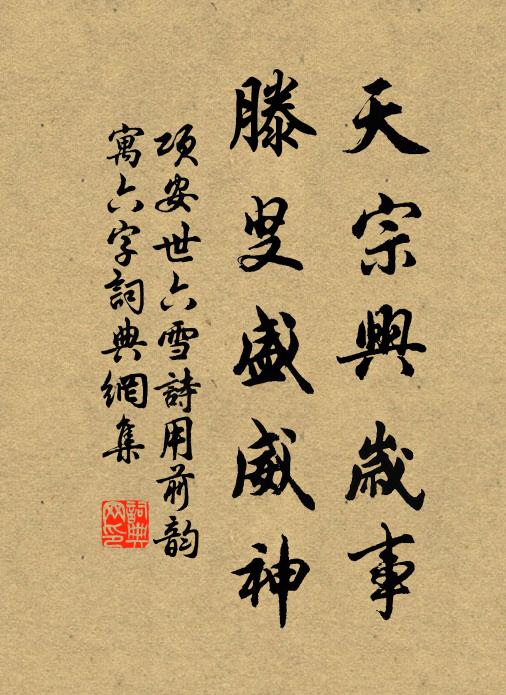 天宗興歲事
滕叟盛威神
項安世六雪詩用前韵
寓六字詞典網集
詞典
网印